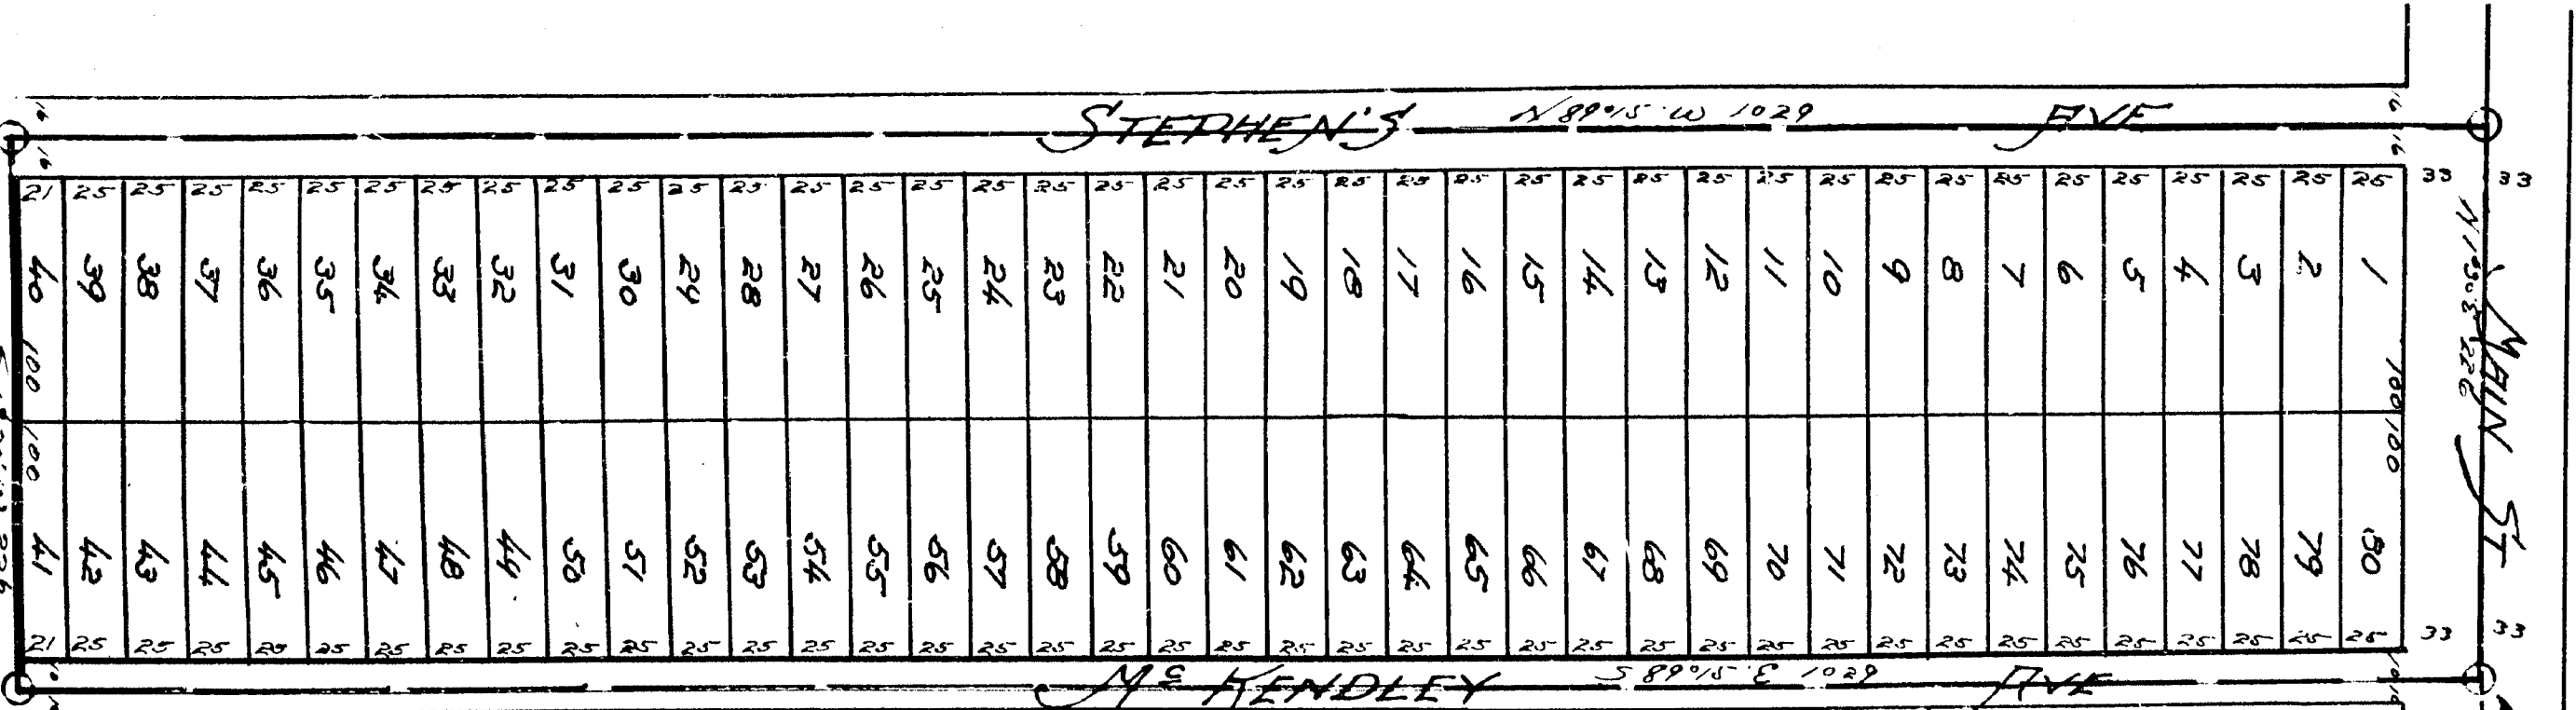 STEPHEN'S N89°15'W 1029 AVE
16 16
16 16
21 25 25 25 25 25 25 25 25 25 25 25 25 25 25 25 25 25 25 25 25 25 25 25 25 25 25 25 25 25 25 25 25 25 25 25 25 25 25 25 33 33
40 39 38 37 36 35 34 33 32 31 30 29 28 27 26 25 24 23 22 21 20 19 18 17 16 15 14 13 12 11 10 9 8 7 6 5 4 3 2 1
100 100
100 100
MAIN ST
41 42 43 44 45 46 47 48 44 50 51 52 53 54 55 56 57 58 59 60 61 62 63 64 65 66 67 68 69 70 71 72 73 74 75 76 77 78 79 80
21 25 25 25 25 25 25 25 25 25 25 25 25 25 25 25 25 25 25 25 25 25 25 25 25 25 25 25 25 25 25 25 25 25 25 25 25 25 25 25 33 33
Mc KENDLEY S89°15'E 1029 AVE